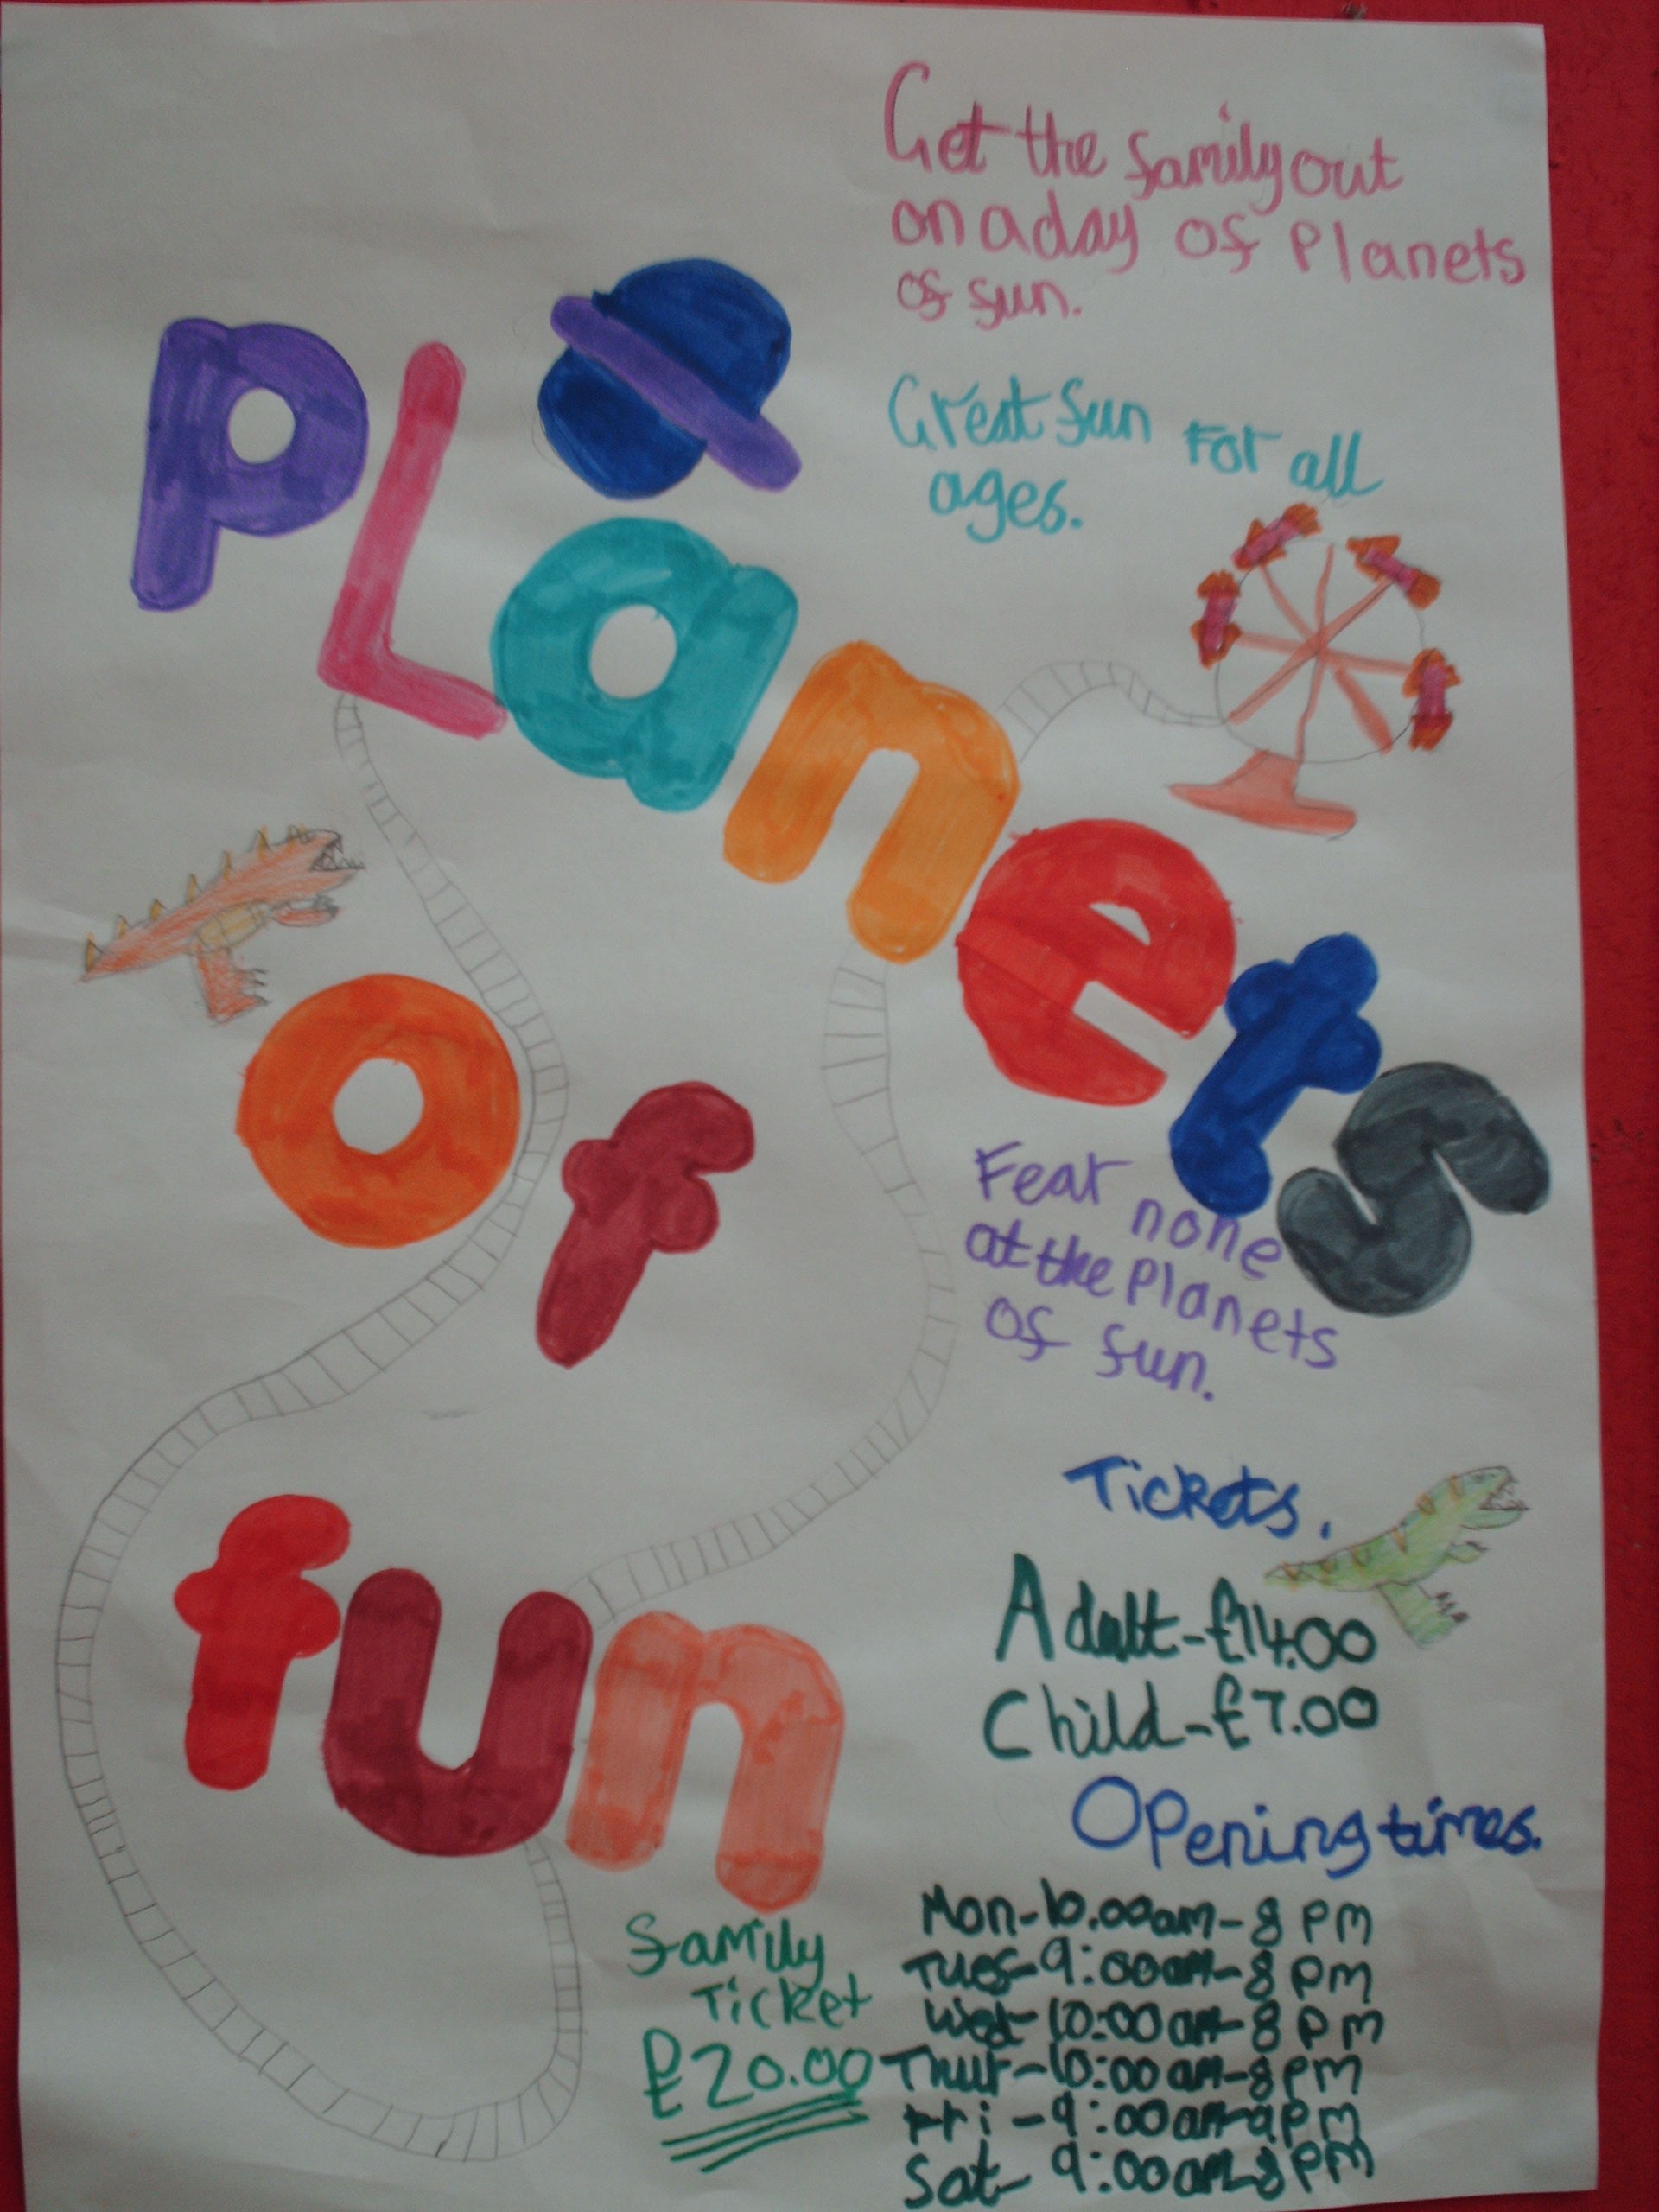 Get the family out
on a day of Planets
of fun.
Great fun For all
ages.
PLanets
of
fun
Fear none
at the Planets
of fun.
Tickets.
Adult-£14.00
Child-£7.00
Opening times.
Mon-10.00am-8PM
Tues-9:00am-8PM
Wed-10:00am-8PM
Thur-10:00am-8PM
Fri-9:00am-9PM
Sat-9:00am-8PM
family
Ticket
£20.00